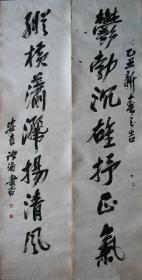 乙丑新春之吉
鬱勃沉雄抒正氣
縱橫瀟灑揚清風
安吉